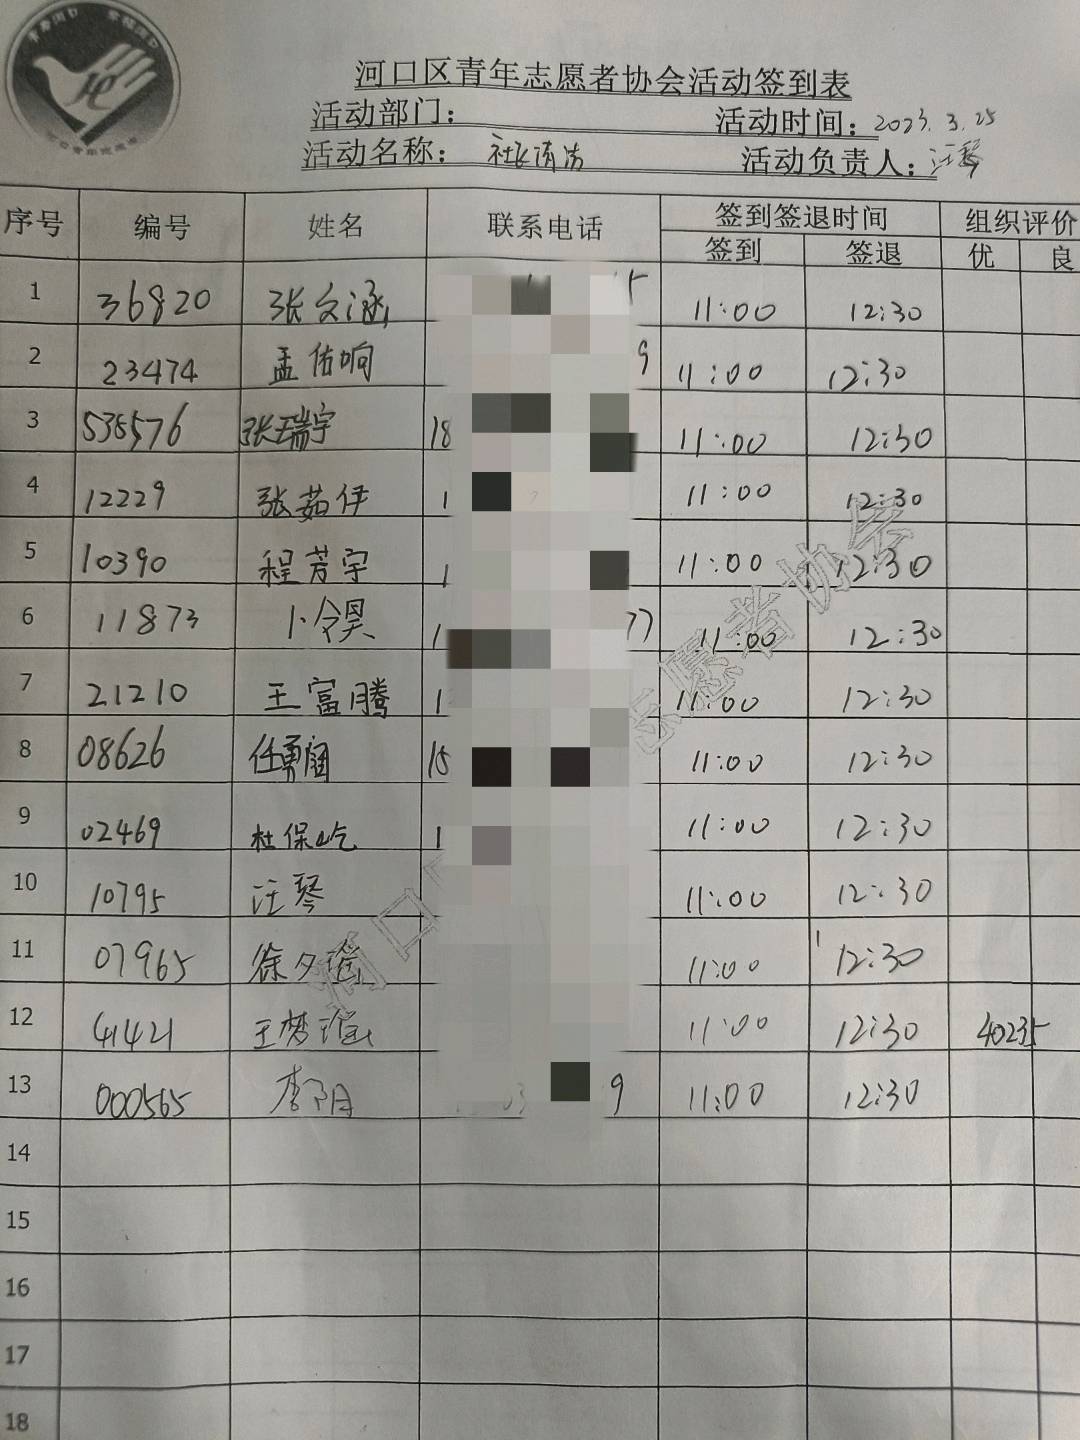 河口区青年志愿者协会活动签到表
活动部门： 活动时间：2023.3.25
活动名称： 清洁 活动负责人：汪琴
序号 编号 姓名 联系电话 签到签退时间 组织评价
签到 签退 优 良
1 36820 张文涵 11:00 12:30
2 23474 孟佑响 9 11:00 12:30
3 538576 张瑞宇 18 11:00 12:30
4 12229 张茹伊 1 11:00 12:30
5 10390 程芳宇 1 11:00 12:30
6 11873 卜令昊 1 77 11:00 12:30
7 21210 王富腾 1 11:00 12:30
8 08626 任勇 15 11:00 12:30
9 02469 杜保屹 1 11:00 12:30
10 10795 汪琴 11:00 12:30
11 07965 徐夕瑶 11:00 12:30
12 41421 王梦 11:00 12:30 40235
13 000565 李阳 9 11:00 12:30
14
15
16
17
18
河口 志愿者协会